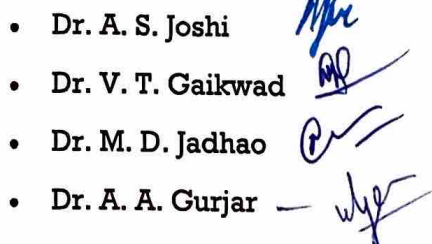 • Dr. A. S. Joshi
• Dr. V. T. Gaikwad
• Dr. M. D. Jadhao
• Dr. A. A. Gurjar –